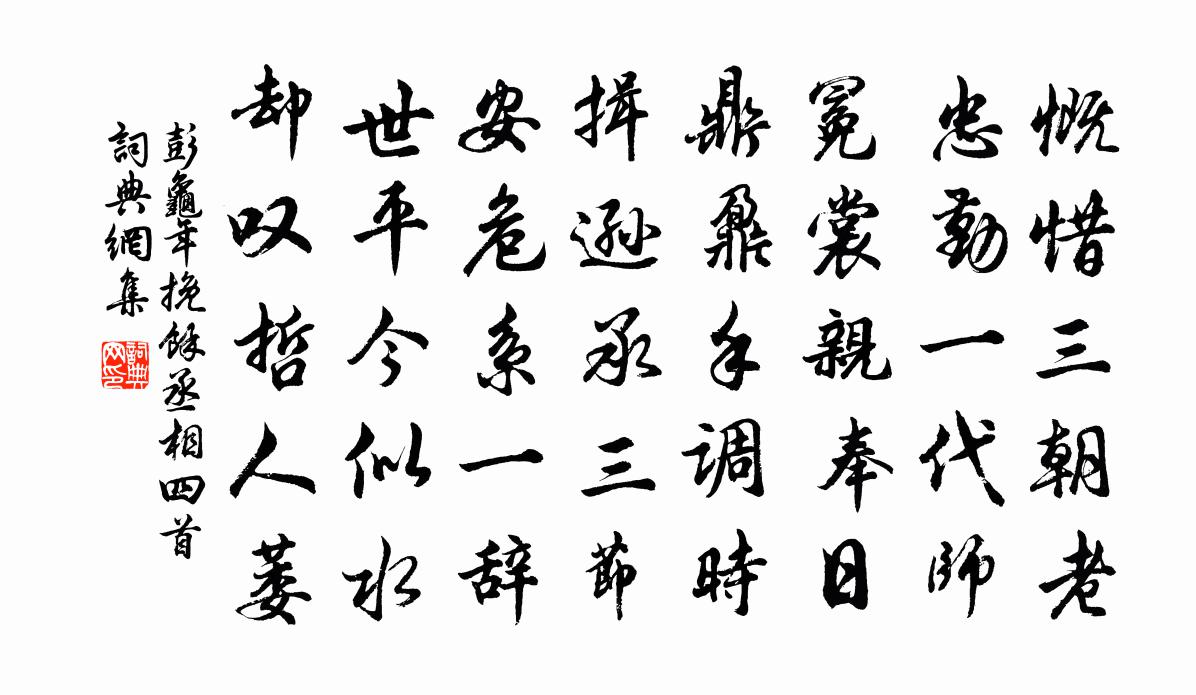 慨惜三朝老
忠勤一代师
冕裳親奉日
鼎鼐手调時
揖逊承三節
安危系一辞
世平今似水
却叹哲人萎
彭龜年挽餘丞相四首
詞典網集
詞典网印